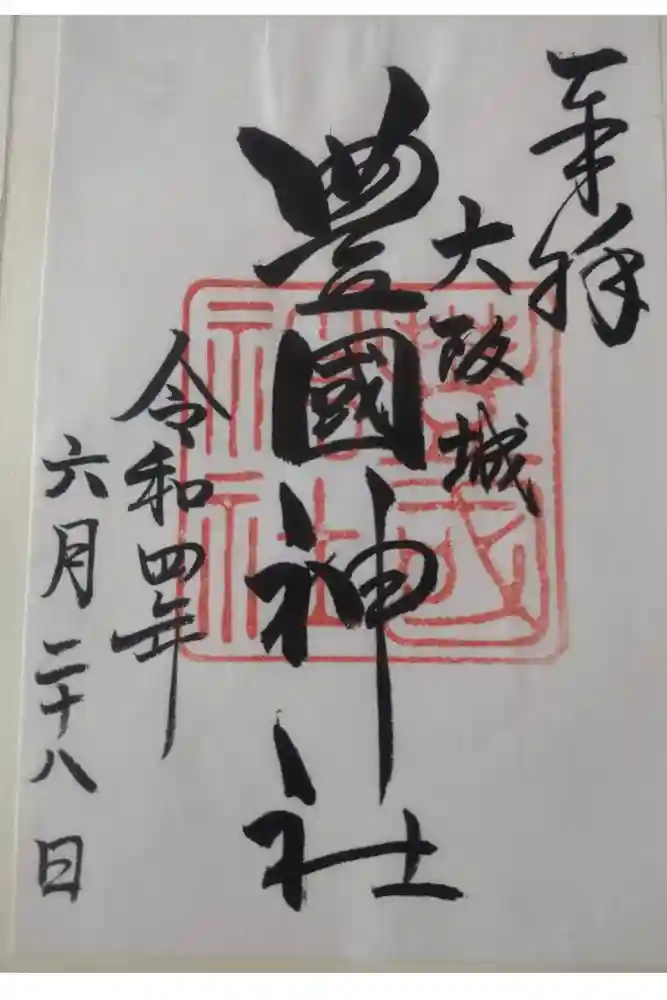 奉拝
大阪城
豊國神社
令和四年
六月二十八日
豊國
神社